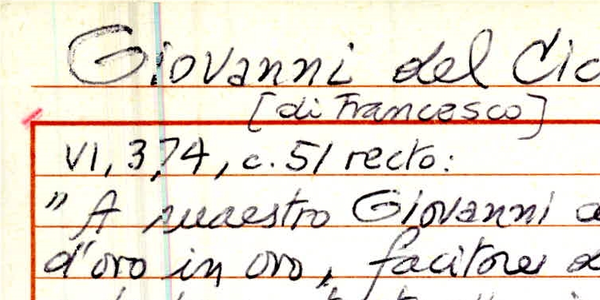 Giovanni del
[di Francesco]
VI, 374, c. 51 recto:
" A maestro Giovanni
d'oro in oro, facitore